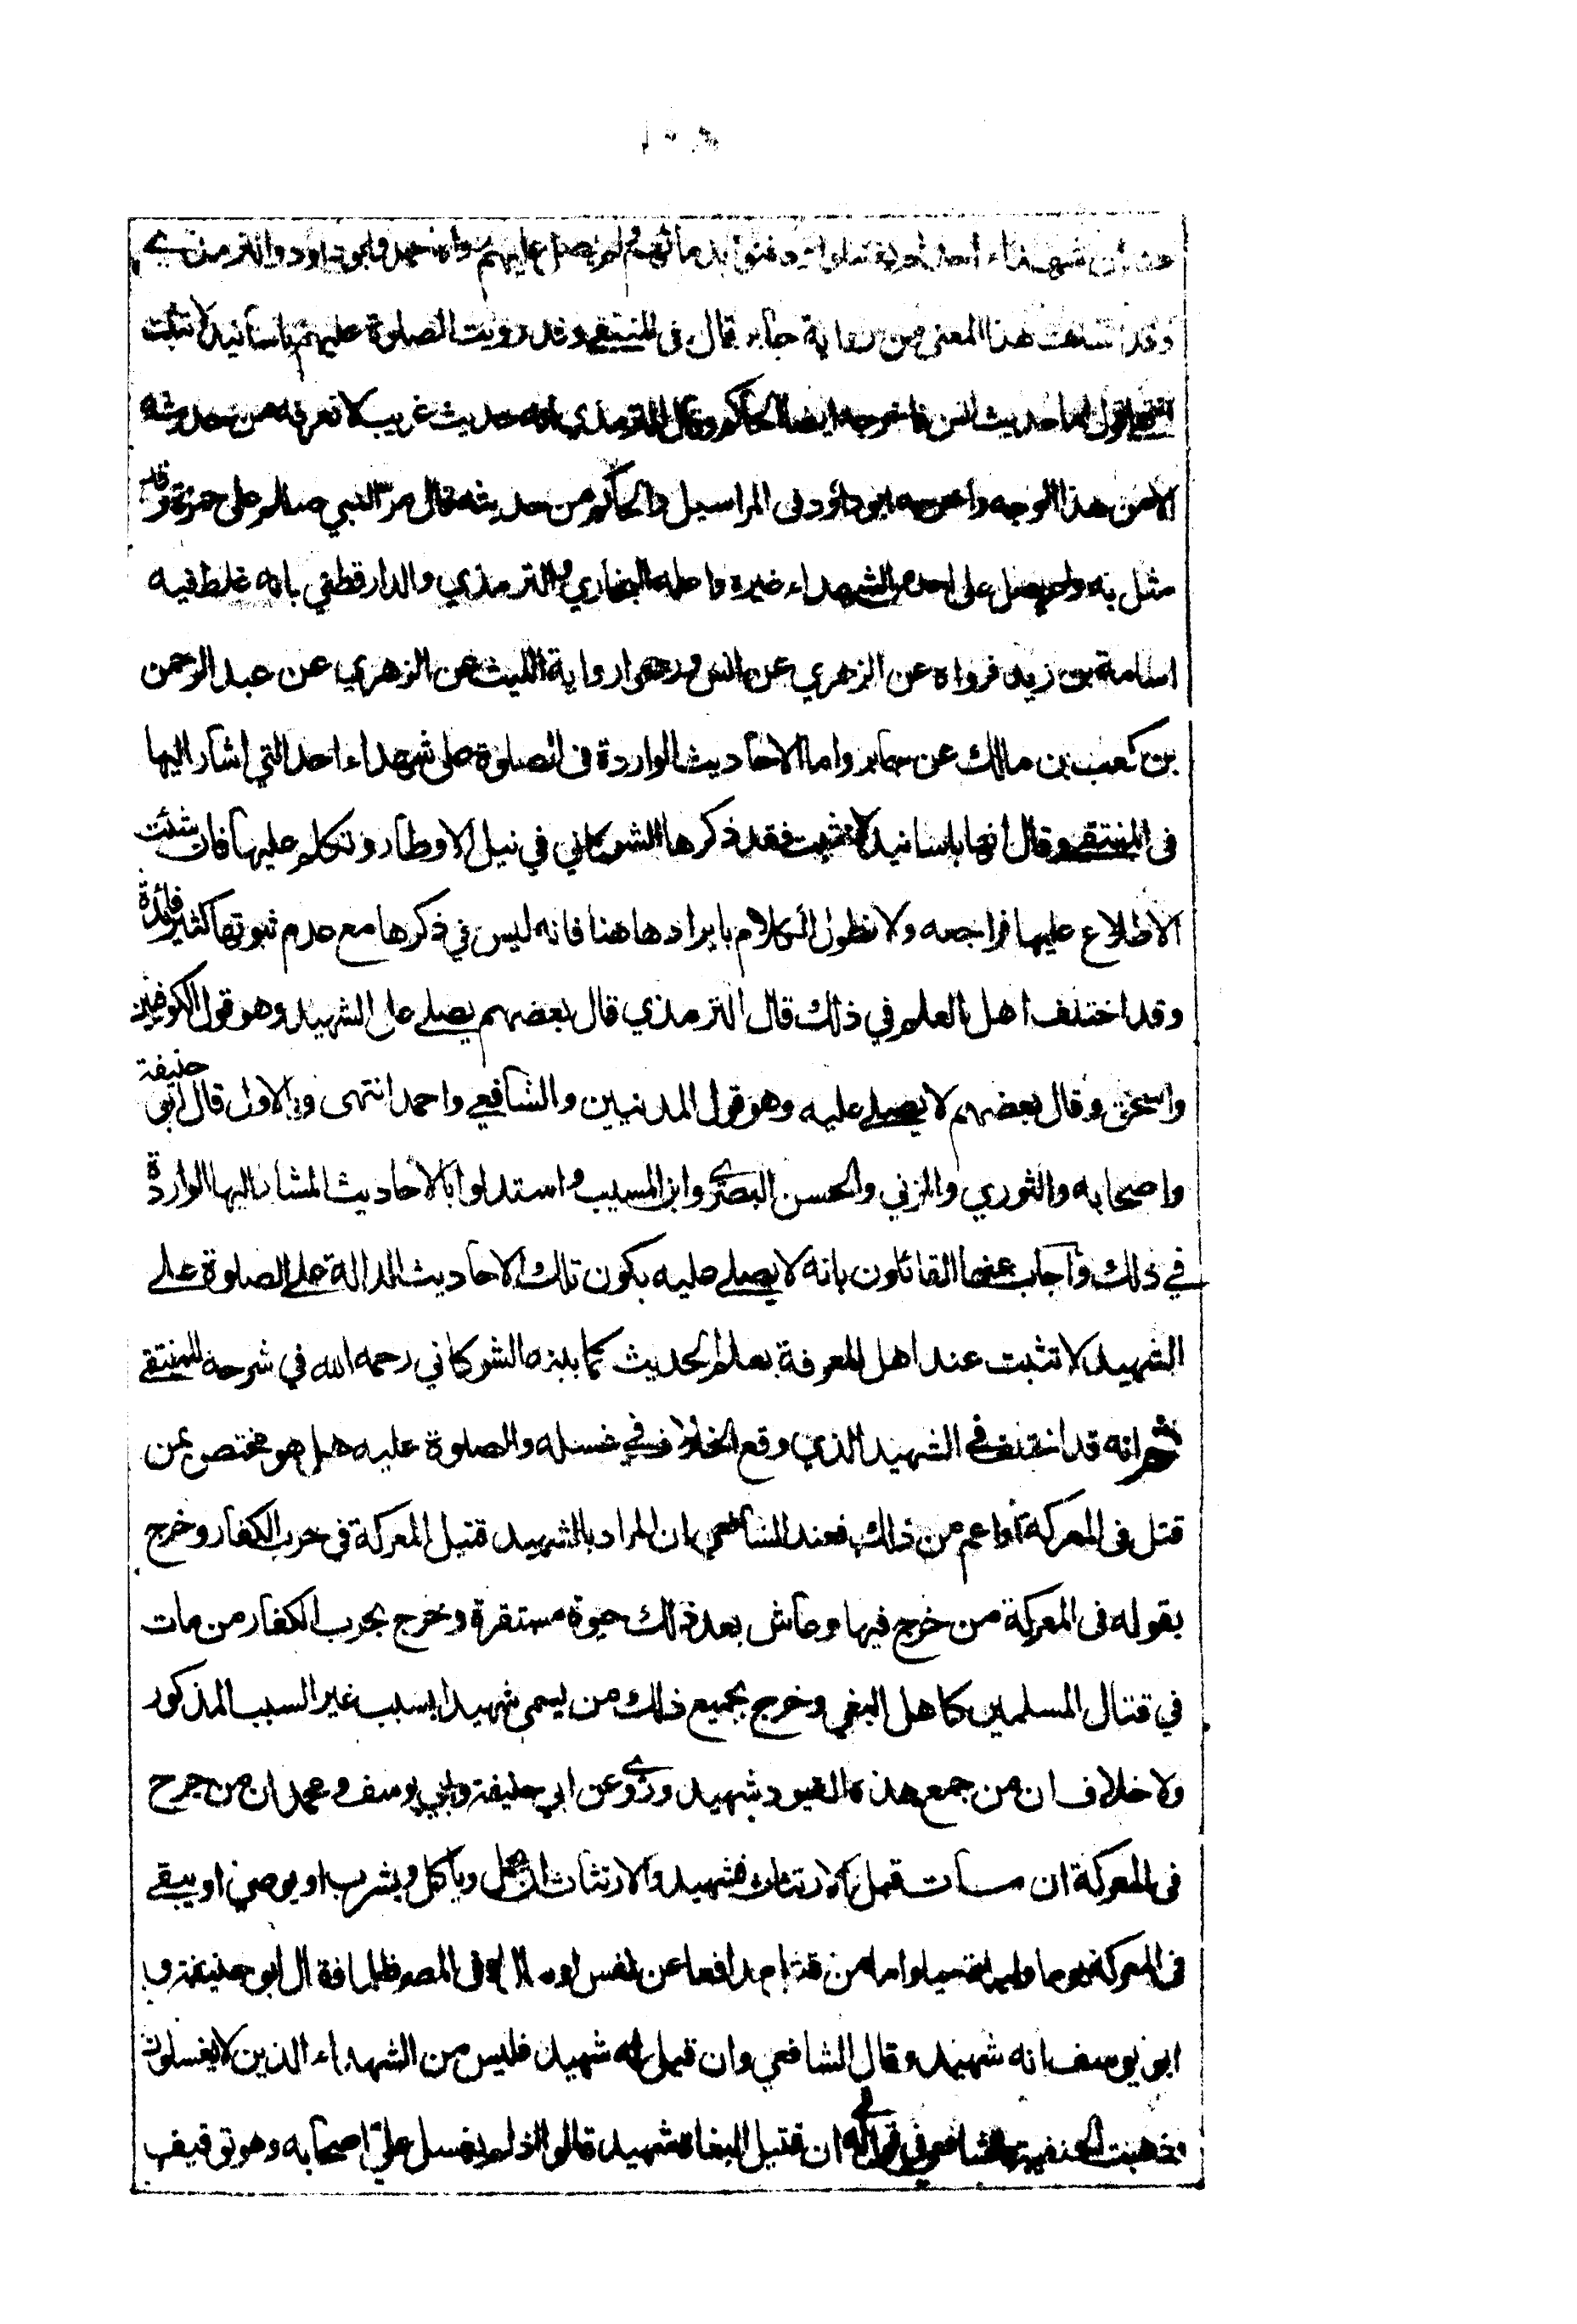 شهداء احد لم يغسلوا ودفنوا بدمائهم ولم يصل عليهم رواه احمد وابوداود والترمذي
وقد هذا المعنى من رواية جابر قال في المنتقى وقد رويت الصلوة عليهم باسانيد لا تثبت
انتهى اقول اما حديث انس فاخرجه ايضا الحاكم وقال الترمذي انه حديث غريب لا نعرفه من حديثه
الا من هذا الوجه واخرجه ابو داؤد في المراسيل والحاكم من حديثه قال مر النبي صللم على حمزة وقد
مثل به ولم يصل على احد من الشهداء غيره واعله البخاري والترمذي والدارقطني بانه غلط فيه
اسامة بن زيد فرواه عن الزهري عن انس ورجحوا رواية الليث عن الزهري عن عبد الرحمن
بن كعب بن مالك عن جابر واما الاحاديث الواردة في الصلوة على شهداء احد التي اشار اليها
في المنتقى وقال انها باسانيد لا تثبت فقد ذكرها الشوكاني في نيل الاوطار وتكلم عليها فان شئت
الاطلاع عليها فراجعه ولا نطول الكلام بايرادها هنا فانه ليس في ذكرها مع عدم ثبوتها كثير فائدة
وقد اختلف اهل العلم في ذلك قال الترمذي قال بعضهم يصلى على الشهيد وهو قول الكوفيين
واسحق وقال بعضهم لا يصلى عليه وهو قول المدنيين والشافعي واحمد انتهى وبالاول قال ابو حنيفة
واصحابه والثوري والمزني والحسن البصري وابن المسيب واستدلوا بالاحاديث المشار اليها الواردة
في ذلك واجاب عنها القائلون بانه لا يصلى عليه بكون تلك الاحاديث الدالة على الصلوة على
الشهيد لا تثبت عند اهل المعرفة بعلم الحديث كما بينه الشوكاني رحمه الله في شرحه للمنتقى
ثم انه قد اختلف في الشهيد الذي وقع الخلاف في غسله والصلوة عليه هل هو مختص بمن
قتل في المعركة او اعم من ذلك فعند الشافعي ان المراد بالشهيد قتيل المعركة في حرب الكفار وخرج
بقوله في المعركة من خرج فيها وعاش بعد ذلك حيوة مستقرة وخرج بحرب الكفار من مات
في قتال المسلمين كاهل البغي وخرج بجميع ذلك من يسمى شهيدا بسبب غير السبب المذكور
ولا خلاف ان من جمع هذه القيود شهيد وروي عن ابي حنيفة وابي يوسف ومحمد ان من جرح
في المعركة ان مات قبل الارتثاث فشهيد والارتثاث ان يحمل وياكل ويشرب او يوصي او يبقى
في المعركة يوما وليلة حيا واما من قتل مدافعا عن نفس او مال او في المصر ظلما فقال ابو حنيفة و
ابو يوسف انه شهيد وقال الشافعي وان قيل له شهيد فليس من الشهداء الذين لا يغسلون
وذهبت الحنفية والشافعي في قول له ان قتيل البغاة شهيد قالوا اذ لم يغسل علي اصحابه وهو توقيف